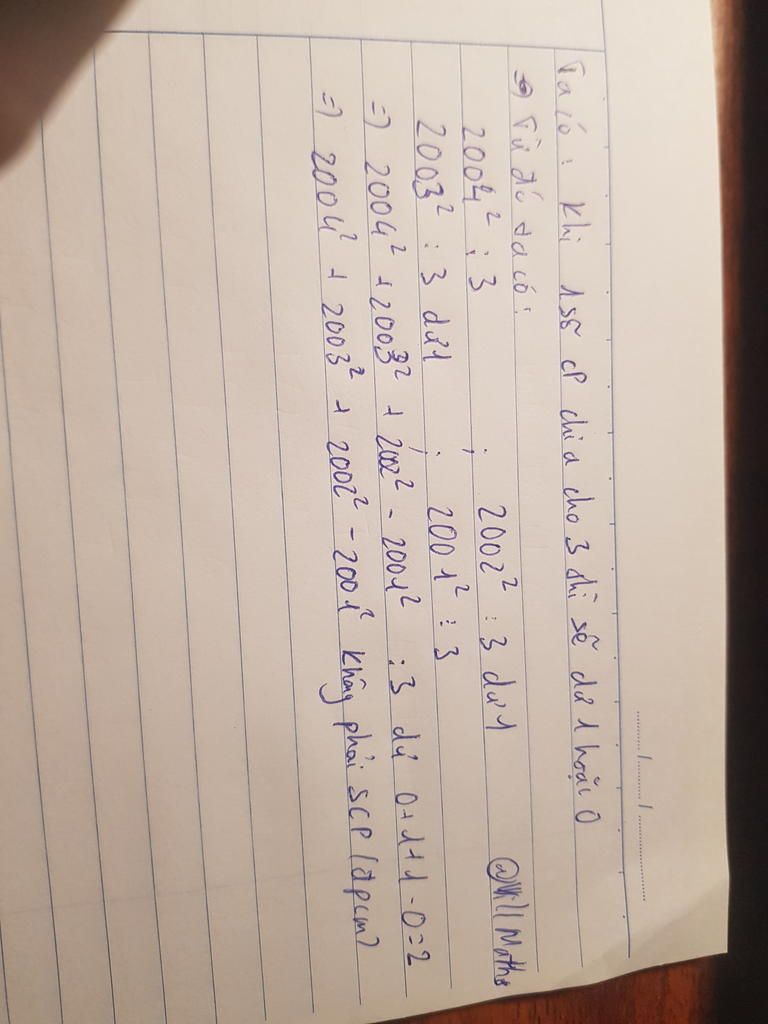 ....../....../..........
Ta có : Khi 1 số CP chia cho 3 thì sẽ dư 1 hoặc 0
=> Từ đó ta có :
2004² ⋮ 3 ; 2002² : 3 dư 1 @Will Maths
2003² : 3 dư 1 ; 2001² ⋮ 3
=> 2004² + 2003² + 2002² - 2001² : 3 dư 0+1+1-0=2
=> 2004² + 2003² + 2002² - 2001² không phải SCP (đpcm)